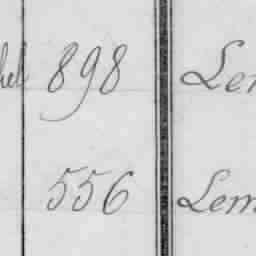 hel 898 Len
556 Lem